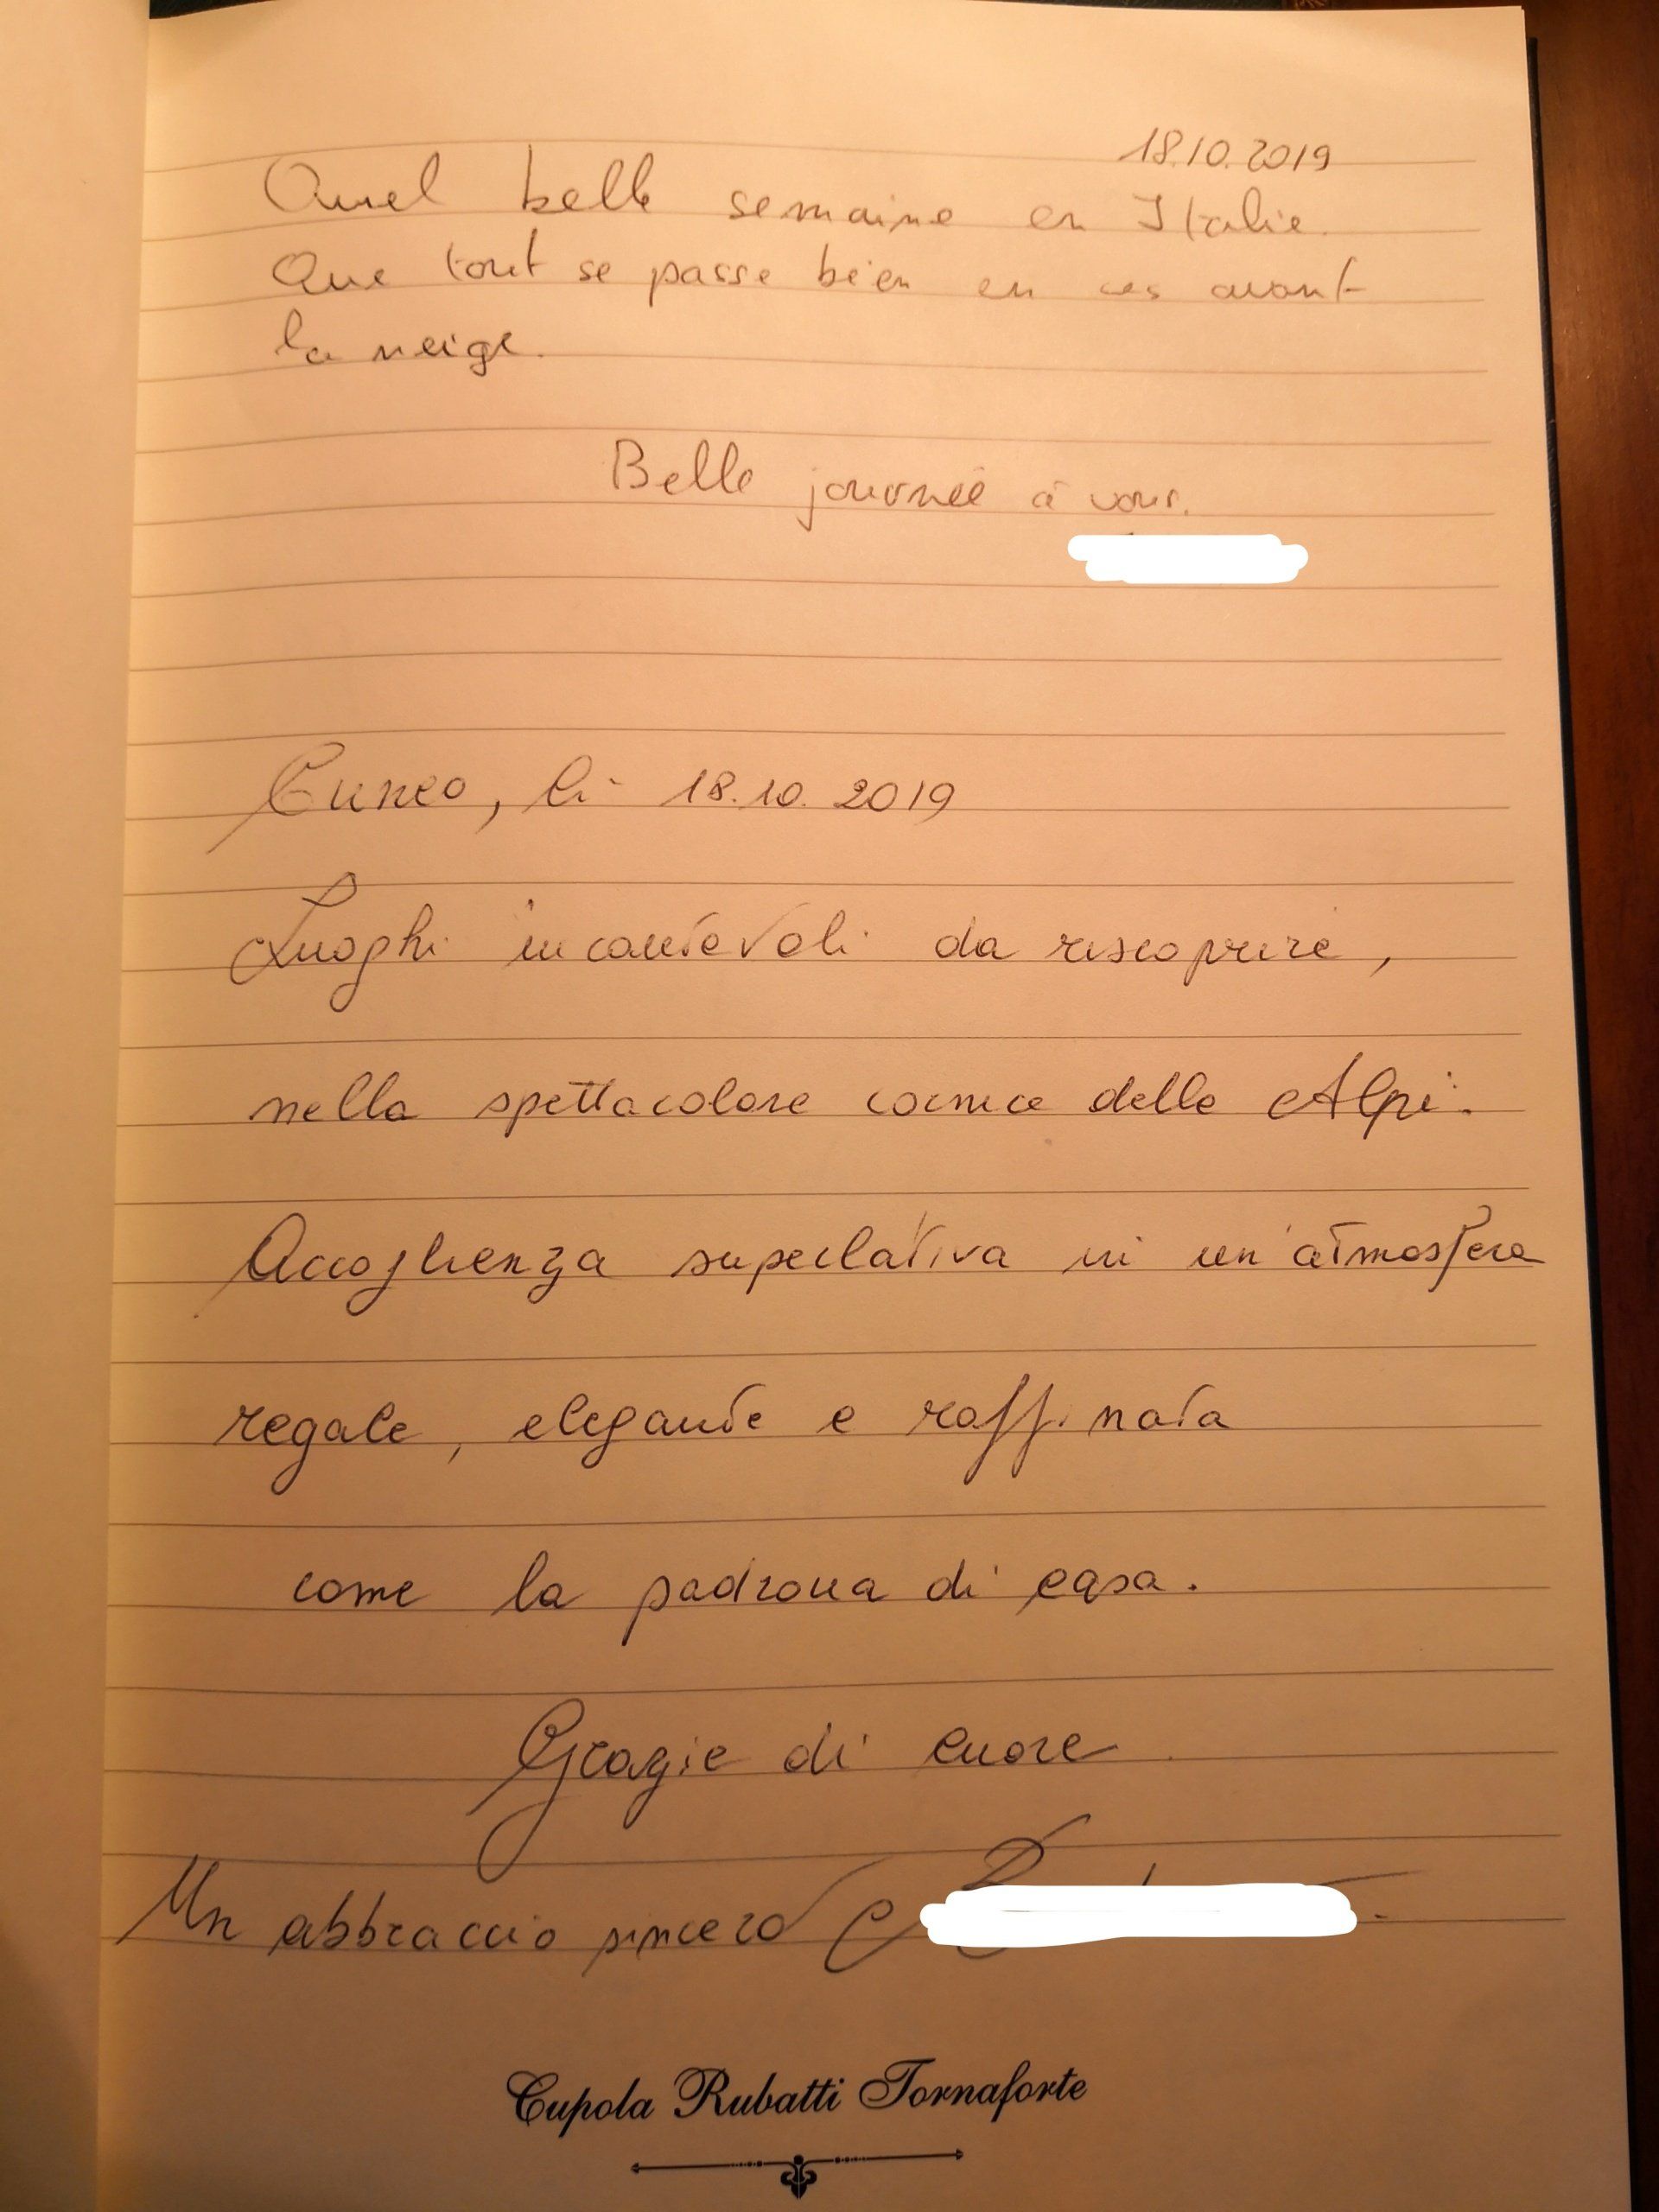 18.10.2019
Quel belle semaine en Italie.
Que tout se passe bien en ces avant
la neige.
Belle journée à vous.
Cuneo, li 18.10.2019
Luoghi incantevoli da riscoprire,
nella spettacolare cornice delle Alpi.
Accoglienza superlativa in un'atmosfera
regale, elegante e raffinata
come la padrona di casa.
Grazie di cuore
Un abbraccio sincero
Cupola Rubatti Tornaforte